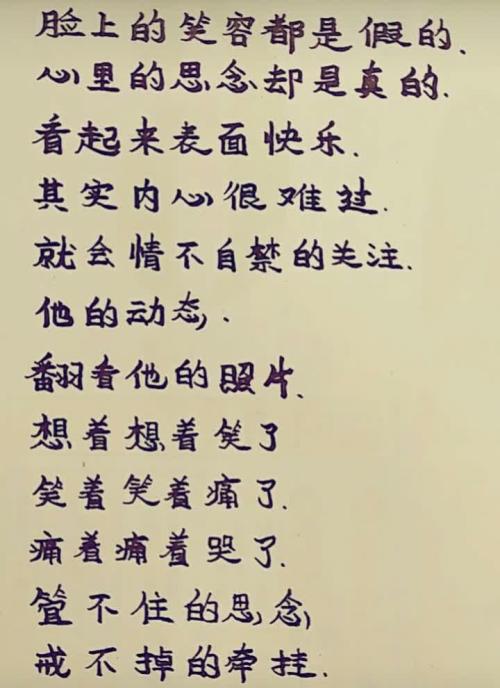 脸上的笑容都是假的.
心里的思念却是真的.
看起来表面快乐.
其实内心很难过.
就会情不自禁的关注.
他的动态,.
翻看他的照片.
想着想着笑了
笑着笑着痛了.
痛着痛着哭了.
管不住的思念,
戒不掉的牵挂.